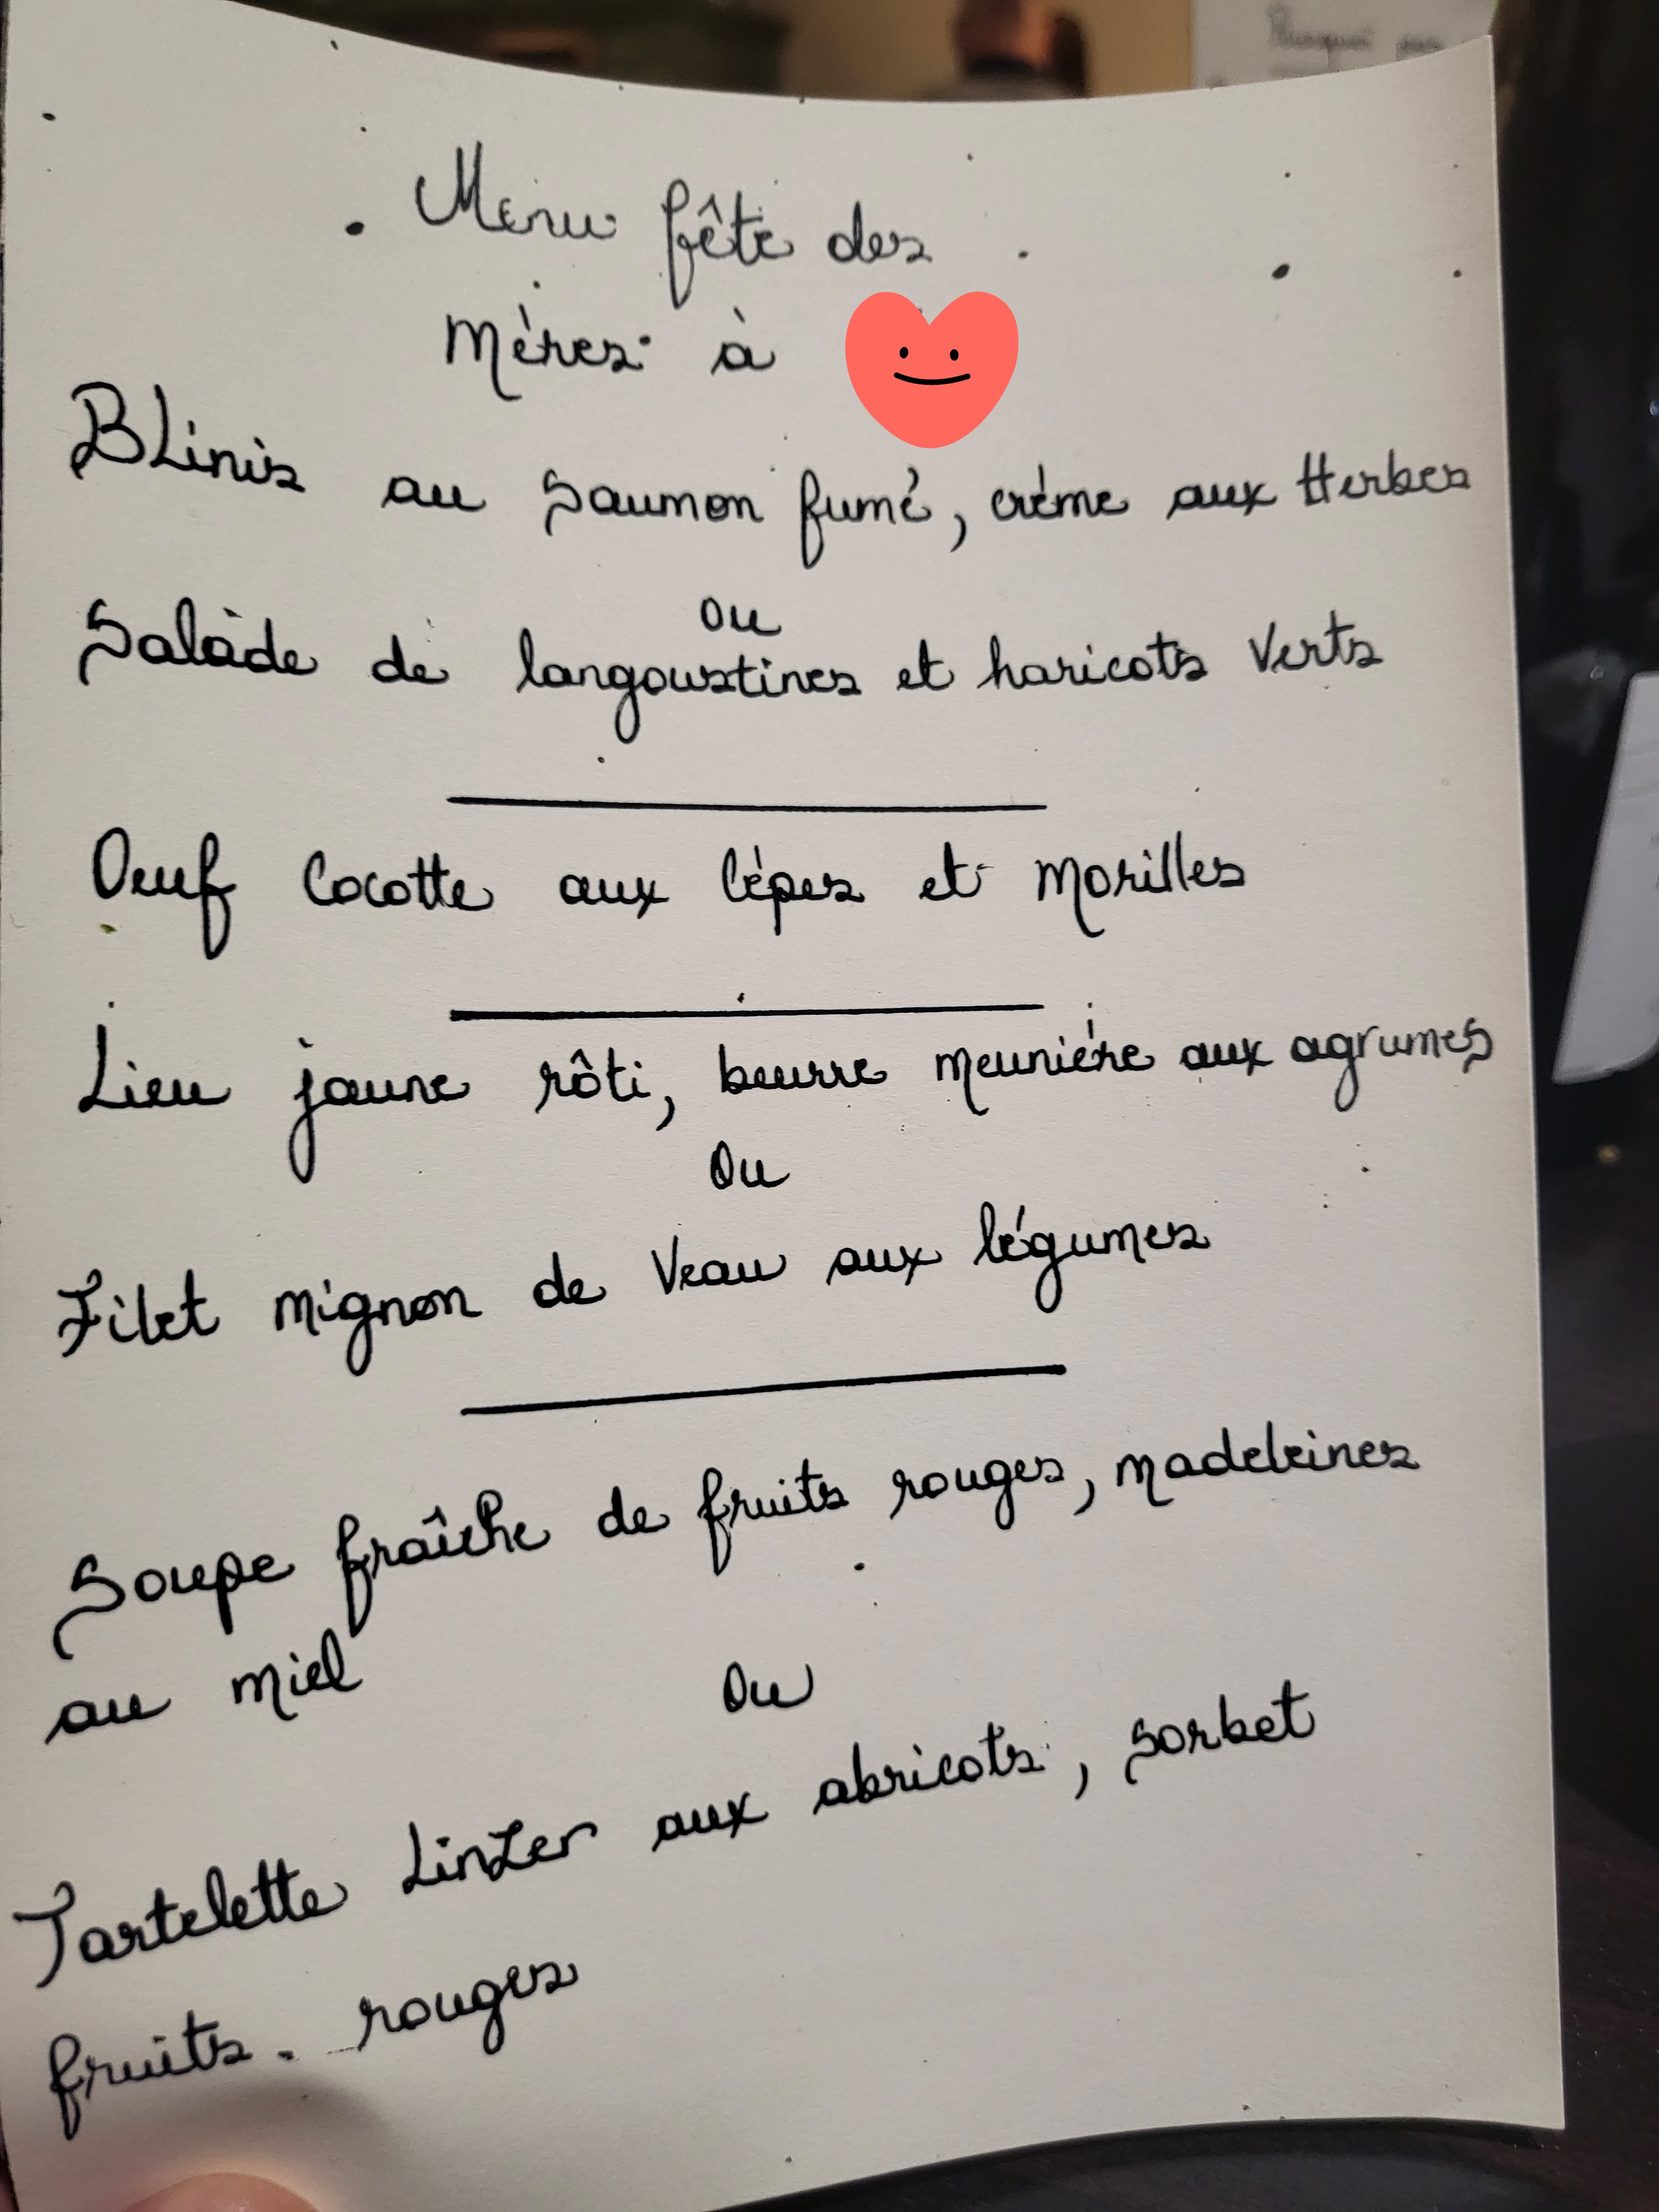 Menu fête des
Mères à
BLinis au Saumon fumé, crème aux Herbes
ou
Salade de langoustines et haricots Verts
Oeuf Cocotte aux Cèpes et Morilles
Lieu jaune rôti, beurre meunière aux agrumes
Ou
Filet mignon de Veau aux légumes
Soupe fraîche de fruits rouges, madeleines
au miel
Ou
Tartelette LinZer aux abricots, sorbet
fruits rouges